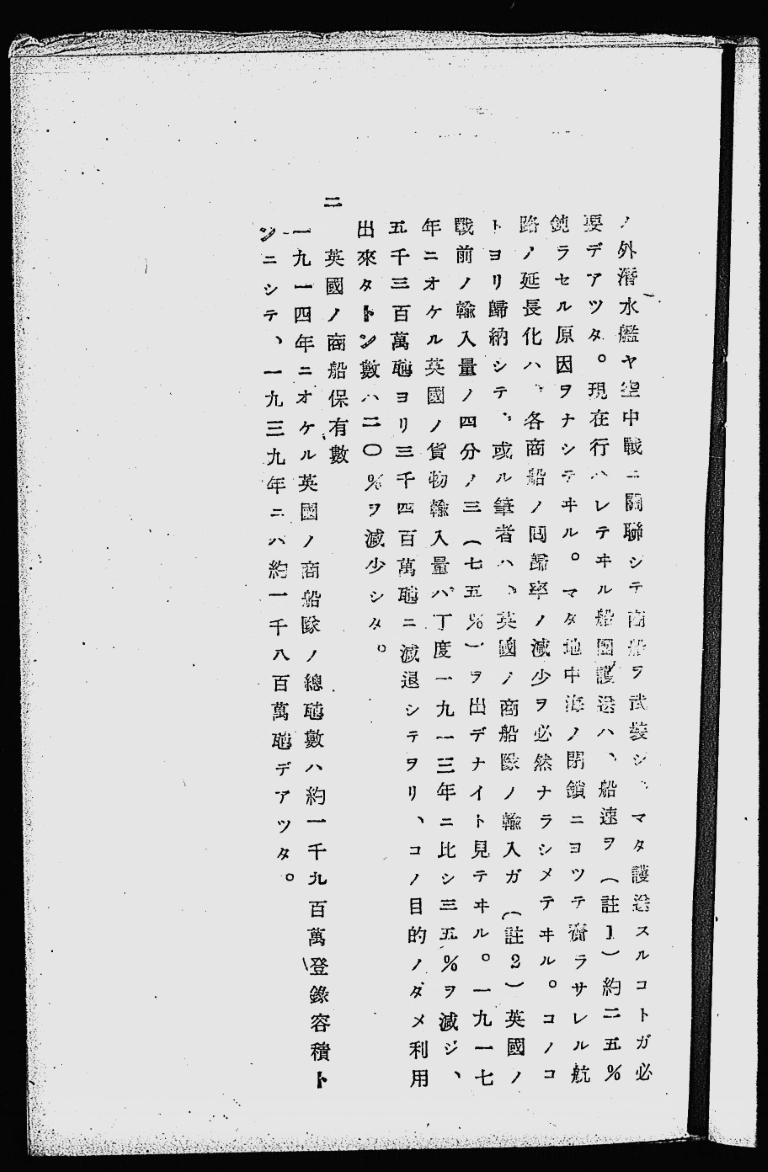 ノ外潛水艦ヤ空中戰ニ關聯シテ商船ヲ武裝シ、マタ護送スルコトガ必
要デアツタ。現在行ハレテヰル船團護送ハ、船速ヲ（註1）約二五％
鈍ラセル原因ヲナシテヰル。マタ地中海ノ閉鎖ニヨツテ齎ラサレル航
路ノ延長化ハ、各商船ノ囘歸率ノ減少ヲ必然ナラシメテヰル。コノコ
トヨリ歸納シテ、或ル筆者ハ、英國ノ商船隊ノ輸入ガ（註2）英國ノ
戰前ノ輸入量ノ四分ノ三（七五％）ヲ出デナイト見テヰル。一九一七
年ニオケル英國ノ貨物輸入量ハ丁度一九一三年ニ比シ三五％ヲ減ジ、
五千三百萬噸ヨリ三千四百萬噸ニ減退シテヲリ、コノ目的ノダメ利用
出來タトン數ハ二〇％ヲ減少シタ。
二　英國ノ商船保有數
一九一四年ニオケル英國ノ商船隊ノ總噸數ハ約一千九百萬登錄容積ト
ンニシテ、一九三九年ニハ約一千八百萬噸デアツタ。